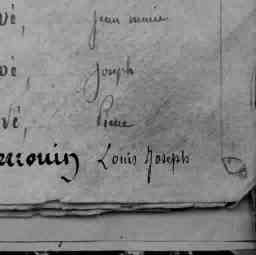 vé, jean marie
vé, joseph
vé, Pierre
errouin Louis Joseph